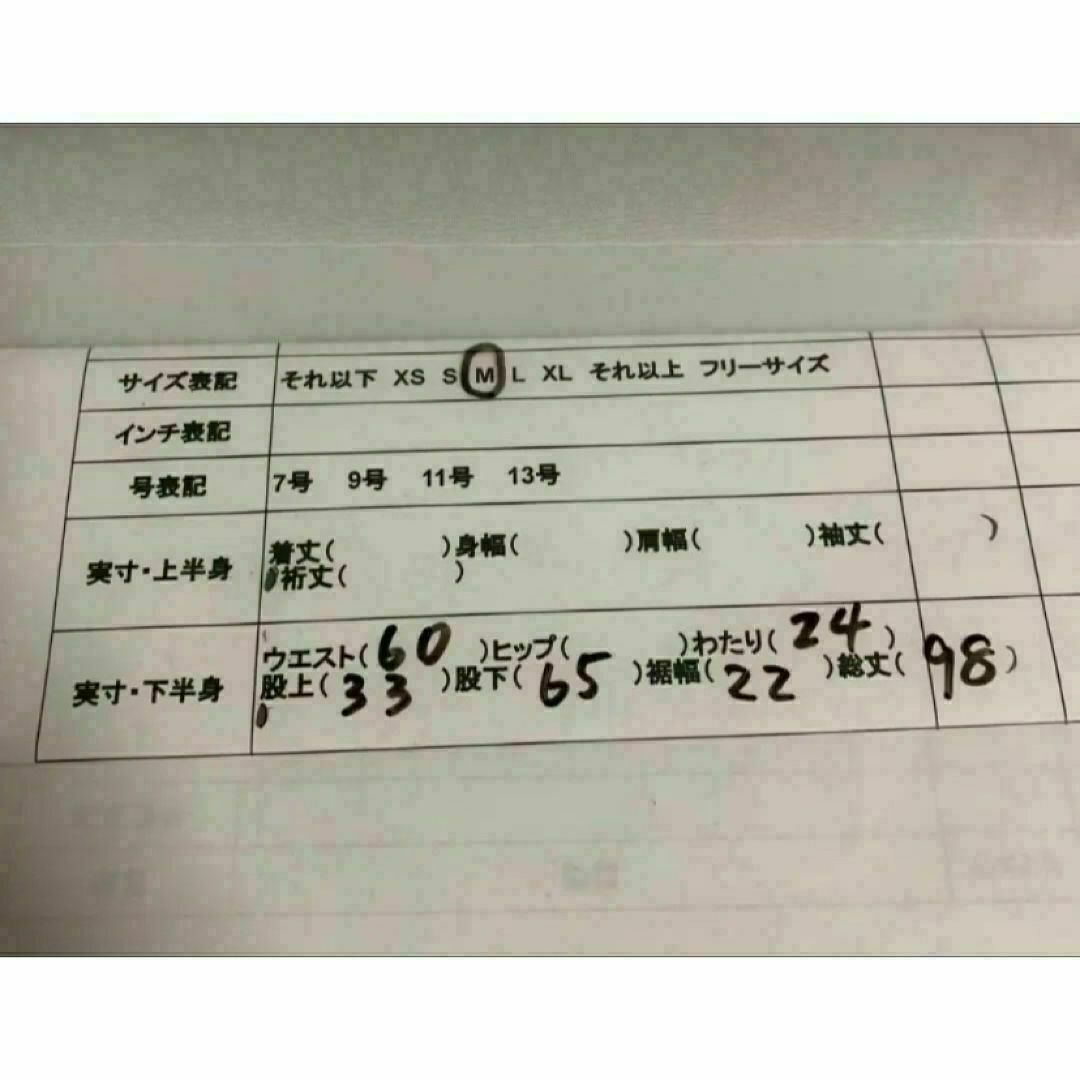 サイズ表記 それ以下 XS S M L XL それ以上 フリーサイズ
インチ表記
号表記 7号 9号 11号 13号
実寸・上半身 着丈( )身幅( )肩幅( )袖丈( )
裄丈( )
実寸・下半身 ウエスト(60)ヒップ( )わたり(24)
股上(33)股下(65)裾幅(22)総丈(98)